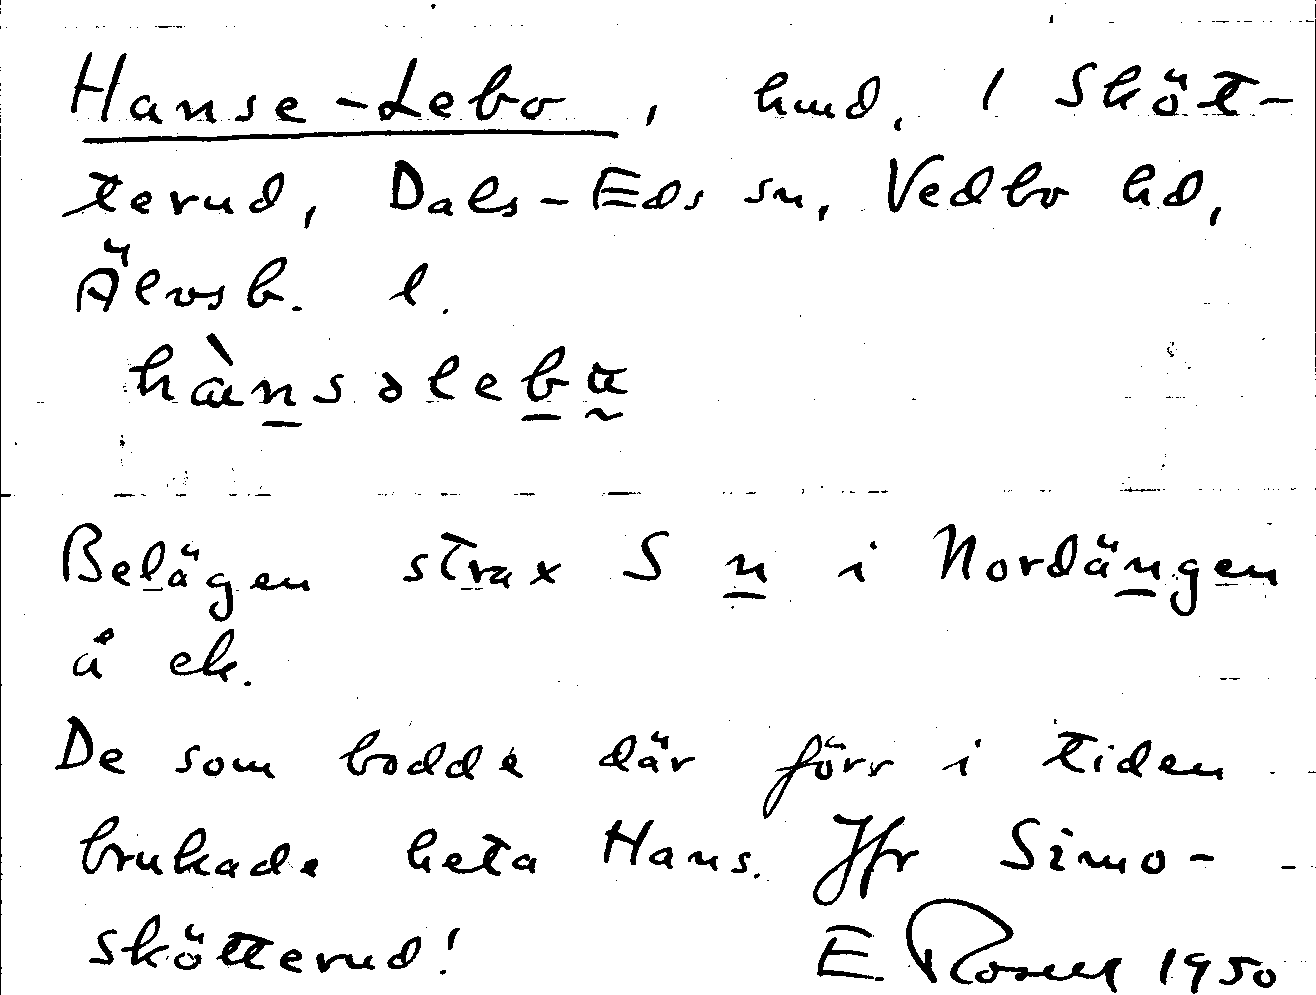 Hanse-Lebo, hmd, 1 Sköt-
terud, Dals-Eds sn, Vedbo hd,
Älvsb. l.
hànsəleb
Belägen strax S n i Nordängen
å ek.
De som bodde där förr i tiden
brukade heta Hans. Jfr Simo-
skötterud!
E. Rosell 1950